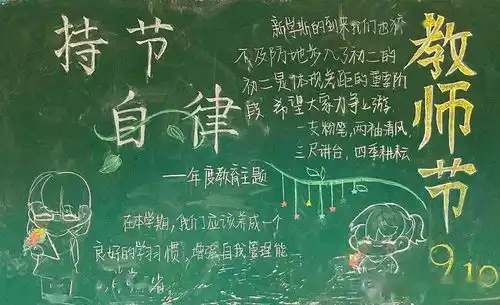 持节
自律
——年度教育主题
在本学期,我们应该养成一个
良好的学习惯,增强自我管理能
新学期的到来我们也猝
不及防地步入了初二的
初二是体现差距的重要阶
段 希望大家力争上游
一支粉笔,两袖清风,
三尺讲台,四季耕耘
教师节
9.10